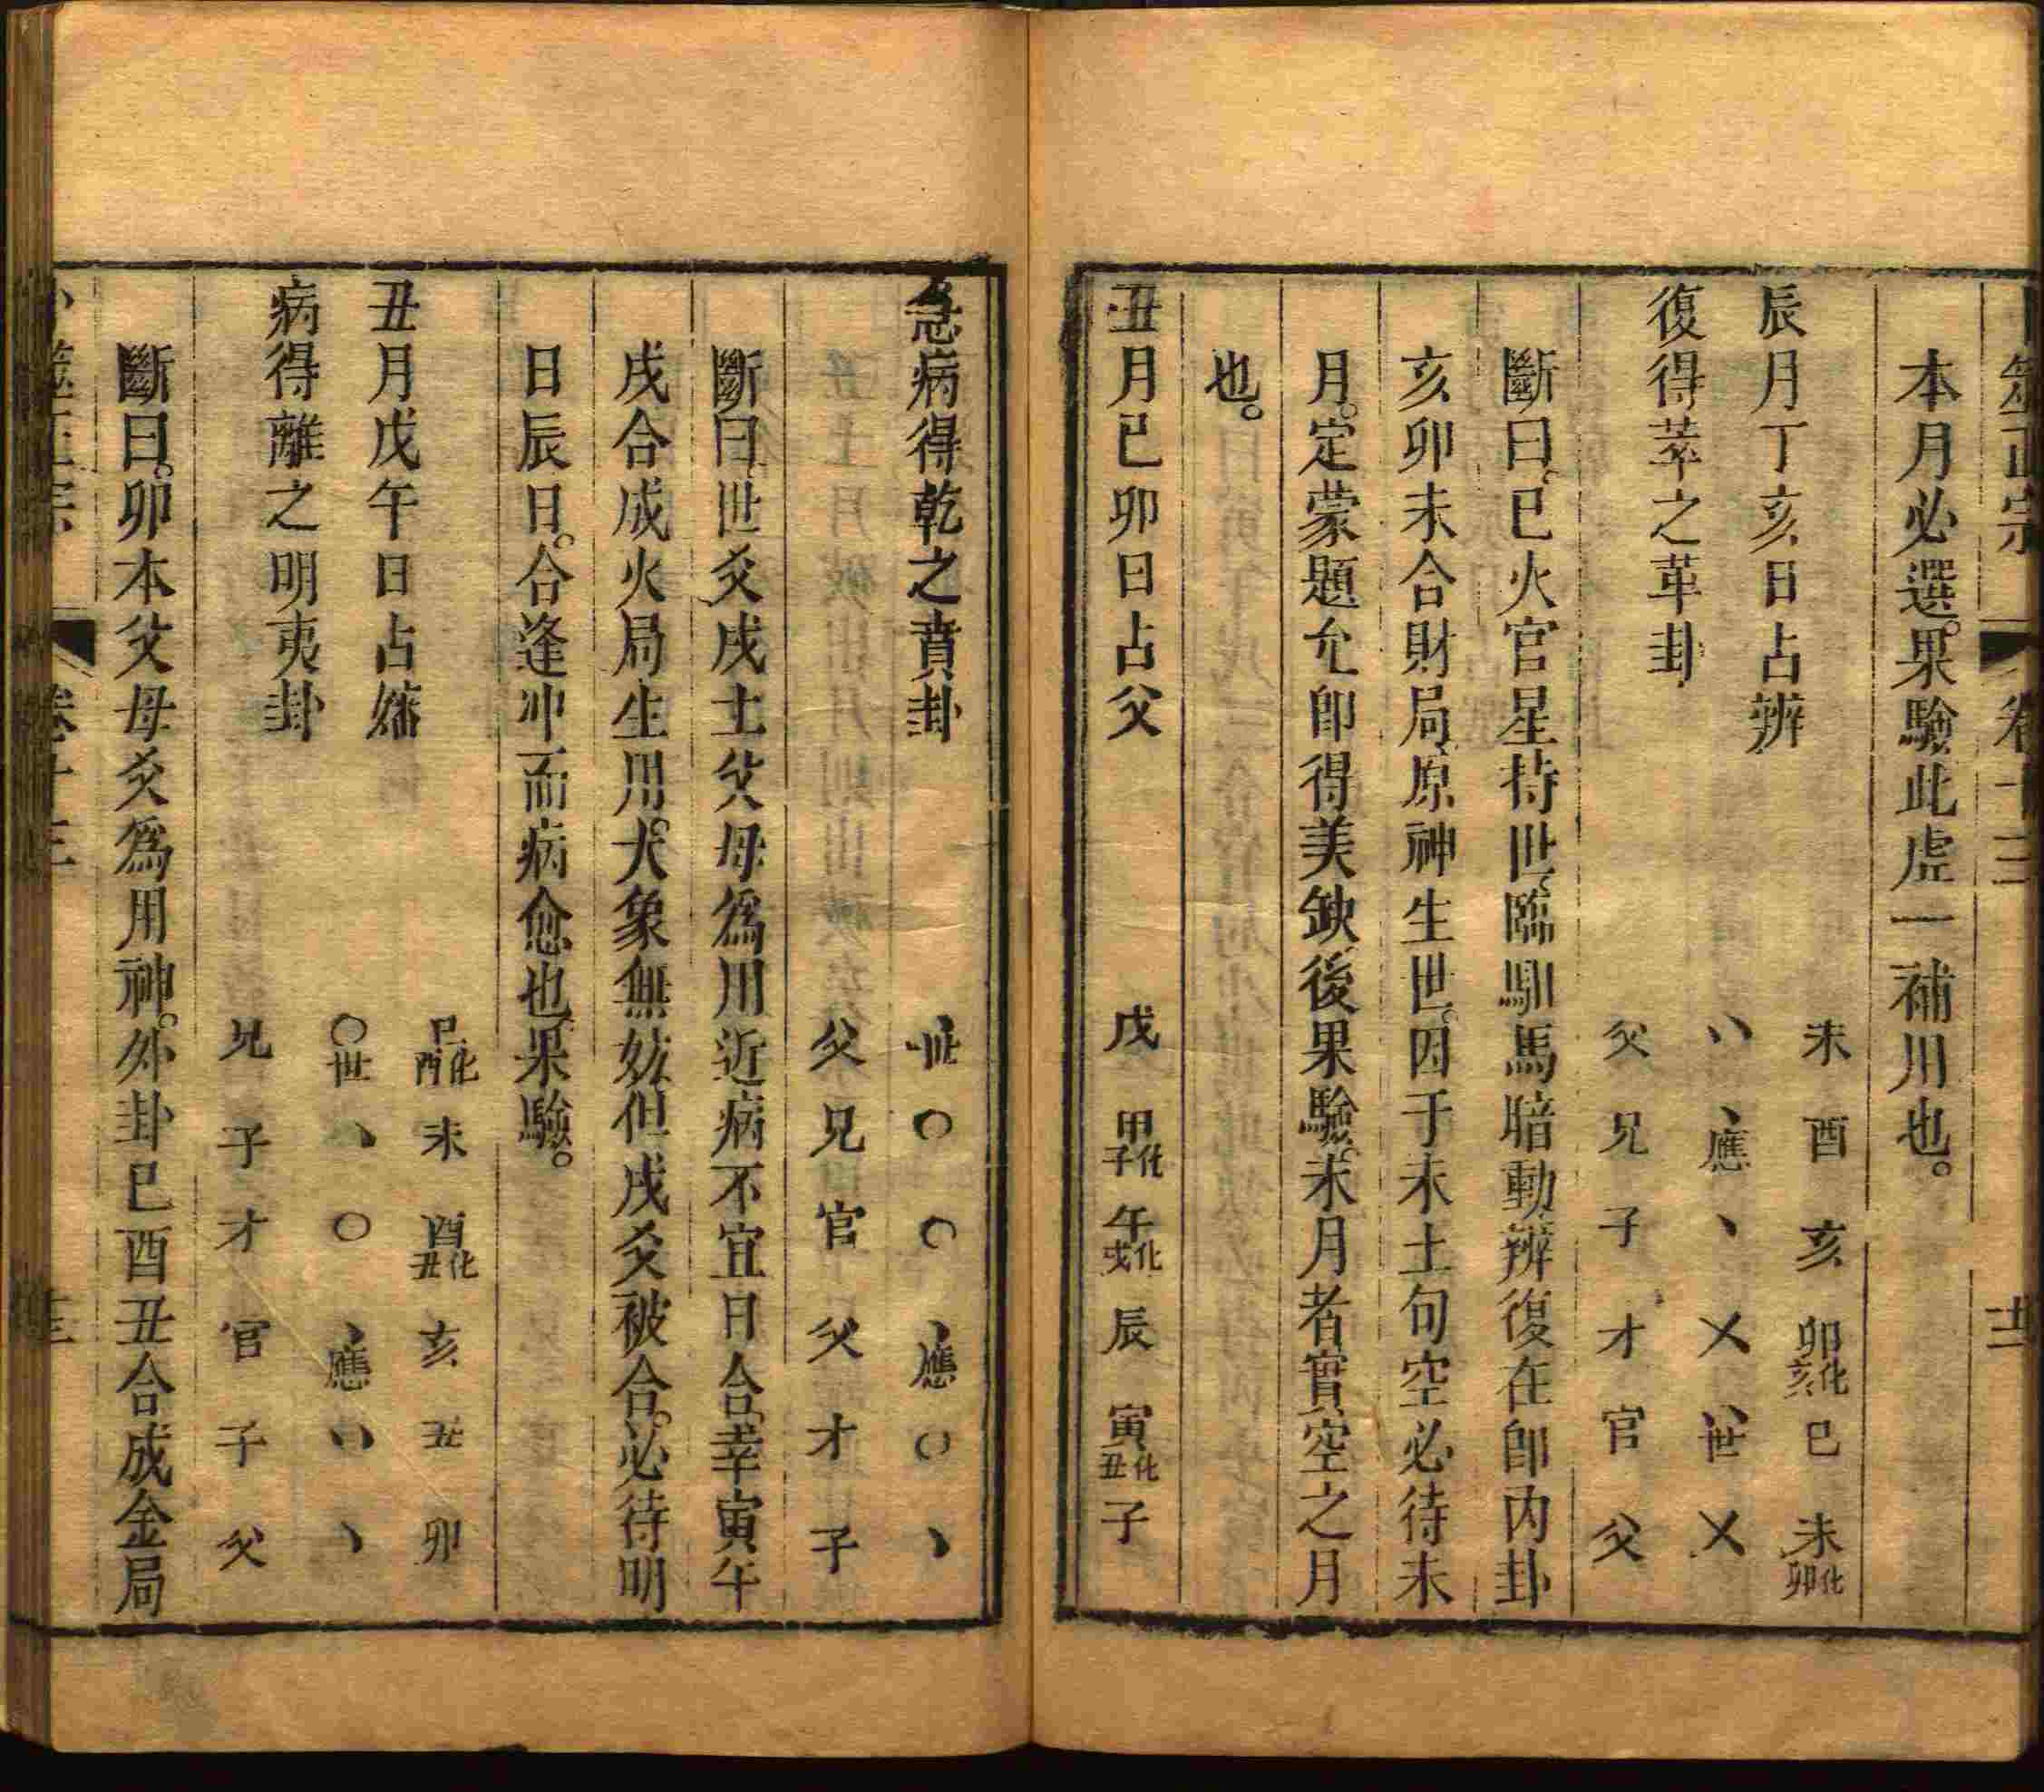 卜筮正宗 卷十三 十二
本月必選。果驗。此虚一補用也。
辰月丁亥日占辨
復得萃之革卦
未 酉 亥 卯化亥 巳 未化卯
〃 、應 、 乂 〃世 乂
父 兄 子 才 官 父
斷曰。巳火官星持世。臨馹馬暗動。辨復在卽。内卦
亥卯未合財局。原神生世。因于未土旬空。必待未
月。定蒙題允。卽得美缺。後果驗。未月者。實空之月
也。
丑月己卯日占父
戌 申化子 午化戌 辰 寅化丑 子
急病得乾之賁卦
、世 〇 〇 、應 〇 、
父 兄 官 父 才 子
斷曰。世爻戌土父母爲用。近病不宜日合。幸寅午
戌合成火局生用。大象無妨。但戌爻被合。必待明
日辰日。合逢冲而病愈也。果驗。
丑月戊午日占嬸
病得離之明夷卦
巳化酉 未 酉化丑 亥 丑 卯
〇世 〃 〇 、應 〃 、
兄 子 才 官 子 父
斷曰。卯本父母爻爲用神。外卦巳酉丑合成金局
卜筮正宗 卷十三 十三